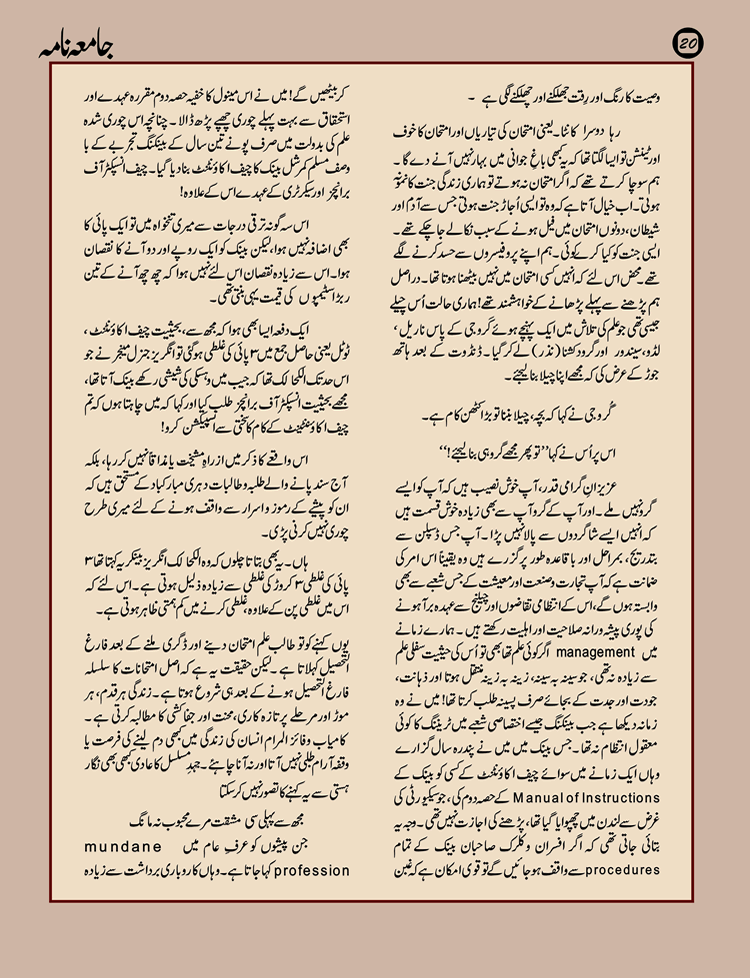 جامعہ نامہ
20
وصیت کا رنگ اور رقت جھلکنے اور چھلکنے لگی ہے ۔
رہا دوسرا کانٹا۔ یعنی امتحان کی تیاریاں اور امتحان کا خوف
اور ٹینشن تو ایسا لگتا تھا کہ یہ بھی باغِ جوانی میں بہار نہیں آنے دے گا ۔
ہم سوچا کرتے تھے کہ اگر امتحان نہ ہوتے تو ہماری زندگی جنت کا نمونہ
ہوتی۔ اب خیال آتا ہے کہ وہ تو ایسی اُجاڑ جنت ہوتی جس سے آدمؑ اور
شیطان، دونوں امتحان میں فیل ہونے کے سبب نکالے جاچکے تھے ۔
ایسی جنت کو کیا کرے کوئی ۔ ہم اپنے پروفیسروں سے حسد کرنے لگے
تھے ۔ محض اس لئے کہ انہیں کسی امتحان میں نہیں بیٹھنا ہوتا تھا ۔ دراصل
ہم پڑھنے سے پہلے پڑھانے کے خواہشمند تھے! ہماری حالت اُس چیلے
جیسی تھی جو علم کی تلاش میں ایک پہنچے ہوئے گروجی کے پاس ناریل ،
لڈو، سیندور اور گرودکشنا (نذر) لے کر گیا ۔ ڈنڈوت کے بعد ہاتھ
جوڑ کے عرض کی کہ مجھے اپنا چیلا بنا لیجئے۔
گروجی نے کہا کہ بچہ، چیلا بننا تو بڑا کٹھن کام ہے۔
اس پر اُس نے کہا ’’تو پھر مجھے گرو ہی بنا لیجئے!‘‘
عزیزانِ گرامی قدر، آپ خوش نصیب ہیں کہ آپ کو ایسے
گرو نہیں ملے ۔ اور آپ کے گرو آپ سے بھی زیادہ خوش قسمت ہیں
کہ انہیں ایسے شاگردوں سے پالا نہیں پڑا ۔ آپ جس ڈسپلن سے
بتدریج، بمراحل اور باقاعدہ طور پر گزرے ہیں وہ یقیناً اس امر کی
ضمانت ہے کہ آپ تجارت و صنعت اور معیشت کے جس شعبے سے بھی
وابستہ ہوں گے، اس کے انتظامی تقاضوں اور چیلنج سے عہدہ برآ ہونے
کی پوری پیشہ ورانہ صلاحیت اور اہلیت رکھتے ہیں ۔ ہمارے زمانے
میں management اگر کوئی علم تھا بھی تو اُس کی حیثیت سفلی علم
سے زیادہ نہ تھی، جو سینہ بہ سینہ، زینہ بہ زینہ منتقل ہوتا اور ذہانت،
جودت اور جدت کے بجائے صرف پسینہ طلب کرتا تھا! میں نے وہ
زمانہ دیکھا ہے جب بینکنگ جیسے اختصاصی شعبے میں ٹریننگ کا کوئی
معقول انتظام نہ تھا ۔ جس بینک میں میں نے پندرہ سال گزارے
وہاں ایک زمانے میں سوائے چیف اکاؤنٹنٹ کے کسی کو بینک کے
Manual of Instructions کے حصہ دوم کی، جو سیکیورٹی کی
غرض سے لندن میں چھپوایا گیا تھا، پڑھنے کی اجازت نہیں تھی۔ وجہ یہ
بتائی جاتی تھی کہ اگر افسران و کلرک صاحبان بینک کے تمام
procedures سے واقف ہوجائیں گے تو قوی امکان ہے کہ غبن
کر بیٹھیں گے! میں نے اس مینول کا خفیہ حصہ دوم مقررہ عہدے اور
استحقاق سے بہت پہلے چوری چھپے پڑھ ڈالا ۔ چنانچہ اس چوری شدہ
علم کی بدولت میں صرف پونے تین سال کے بینکنگ تجربے کے با
وصف مسلم کمرشل بینک کا چیف اکاؤنٹنٹ بنا دیا گیا ۔ چیف انسپکٹر آف
برانچز اور سیکرٹری کے عہدے اس کے علاوہ!
اس سہ گونہ ترقی درجات سے میری تنخواہ میں تو ایک پائی کا
بھی اضافہ نہیں ہوا، لیکن بینک کو ایک روپے اور دو آنے کا نقصان
ہوا۔ اس سے زیادہ نقصان اس لئے نہیں ہوا کہ چھ چھ آنے کے تین
ربڑ اسٹیمپوں کی قیمت یہی بنتی تھی۔
ایک دفعہ ایسا بھی ہوا کہ مجھ سے، بحیثیت چیف اکاؤنٹنٹ ،
ٹوٹل یعنی حاصل جمع میں ۳ پائی کی غلطی ہوگئی تو انگریز جنرل منیجر نے جو
اس حد تک الکحالک تھا کہ جیب میں وہسکی کی شیشی رکھے بینک آتا تھا،
مجھے بحیثیت انسپکٹر آف برانچز طلب کیا اور کہا کہ میں چاہتا ہوں کہ تم
چیف اکاؤنٹینٹ کے کام کا سختی سے انسپیکشن کرو!
اس واقعے کا ذکر میں ازراہِ مشیخت یا مذاقاً نہیں کر رہا، بلکہ
آج سند پانے والے طلبہ و طالبات دہری مبارکباد کے مستحق ہیں کہ
ان کو پیشے کے رموز و اسرار سے واقف ہونے کے لئے میری طرح
چوری نہیں کرنی پڑی۔
ہاں ۔ یہ بھی بتاتا چلوں کہ وہ الکحالک انگریز بینکر یہ کہتا تھا ۳
پائی کی غلطی ۳ کروڑ کی غلطی سے زیادہ ذلیل ہوتی ہے ۔ اس لئے کہ
اس میں غلطی پن کے علاوہ، غلطی کرنے میں کم ہمتی ظاہر ہوتی ہے۔
یوں کہنے کو تو طالب علم امتحان دینے اور ڈگری ملنے کے بعد فارغ
التحصیل کہلاتا ہے ۔ لیکن حقیقت یہ ہے کہ اصل امتحانات کا سلسلہ
فارغ التحصیل ہونے کے بعد ہی شروع ہوتا ہے ۔ زندگی ہر قدم، ہر
موڑ اور مرحلے پر تازہ کاری، محنت اور جفاکشی کا مطالبہ کرتی ہے ۔
کامیاب و فائز المرام انسان کی زندگی میں بھی دم لینے کی فرصت یا
وقفہ آرام طلبی نہیں آتا اور نہ آنا چاہئے ۔ جہدِ مسلسل کا عادی بھی بھی نگار
ہستی سے یہ کہنے کا تصور نہیں کرسکتا
مجھ سے پہلی سی مشقت مرے محبوب نہ مانگ
جن پیشوں کو عرفِ عام میں mundane
profession کہا جاتا ہے ۔ وہاں کاروباری برداشت سے زیادہ